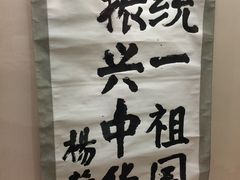 统一祖国
振兴中华
杨